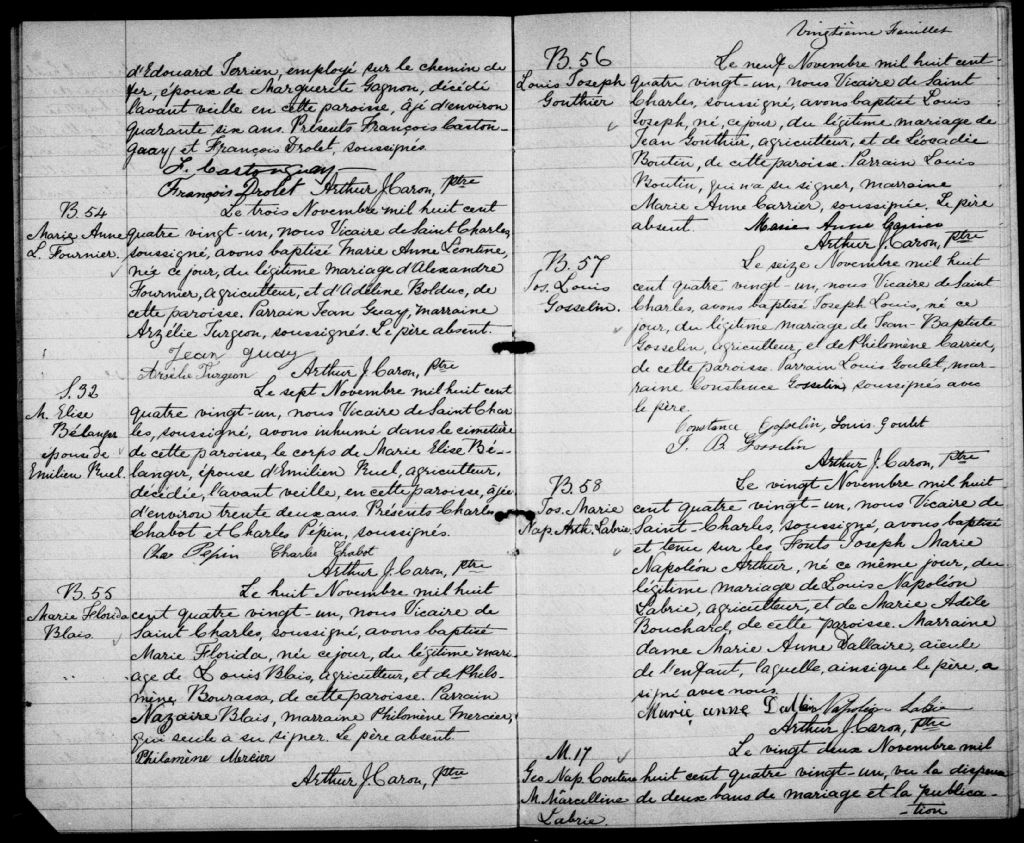 d'Edouard Terrien, employé sur le chemin de
fer, époux de Marguerite Gagnon, décédé
l'avant veille en cette paroisse, âjé d'environ
quarante six ans. Présents François Caston-
guay et François Drolet, soussignés.
F. Castonguay
François Drolet Arthur J. Caron, ptre
B. 54
Marie Anne
L. Fournier.
Le trois Novembre mil huit cent
quatre vingt-un, nous Vicaire de Saint Charles,
soussigné, avons baptisé Marie Anne Léontine,
née ce jour, du légitime mariage d'Alexandre
Fournier, agriculteur, et d'Adeline Bolduc, de
cette paroisse. Parrain Jean Guay, marraine
Arzélie Turgeon, soussignés. Le père absent.
Jean Guay
Arzélie Turgeon Arthur J. Caron, ptre
S. 32
M. Elise
Bélanger
épouse de
Emilien Ruel.
Le sept Novembre mil huit cent
quatre vingt-un, nous Vicaire de Saint Char
les, soussigné, avons inhumé dans le cimetière
de cette paroisse, le corps de Marie Elise Bé-
langer, épouse d'Emilien Ruel, agriculteur,
décédée, l'avant veille, en cette paroisse, âjée
d'environ trente deux ans. Présents Charles
Chabot et Charles Pépin, soussignés.
Chs Pepin Charles Chabot
Arthur J. Caron, ptre
B. 55
Marie Florida
Blais.
Le huit Novembre mil huit
cent quatre vingt-un, nous Vicaire de
Saint Charles, soussigné, avons baptisé
Marie Florida, née ce jour, du légitime mari-
age de Louis Blais, agriculteur, et de Philo-
mène Bourassa, de cette paroisse. Parrain
Nazaire Blais, marraine Philomène Mercier,
qui seule a su signer. Le père absent.
Philomène Mercier
Arthur J. Caron, ptre
Vingtième Feuillet
B. 56
Louis Joseph
Gonthier
Le neuf Novembre mil huit cent
quatre vingt-un, nous Vicaire de Saint
Charles, soussigné, avons baptisé Louis
Joseph, né, ce jour, du légitime mariage de
Jean Gonthier, agriculteur, et de Léocadie
Boutin, de cette paroisse. Parrain Louis
Boutin, qui n'a su signer, marraine
Marie Anne Carrier, soussignée. Le père
absent. Marie Anne
Arthur J. Caron, ptre
B. 57
Jos. Louis
Gosselin.
Le seize Novembre mil huit
cent quatre vingt-un, nous Vicaire de Saint
Charles, avons baptisé Joseph Louis, né ce
jour, du légitime mariage de Jean-Baptiste
Gosselin, agriculteur, et de Philomène Carrier,
de cette paroisse. Parrain Louis Goulet, mar-
raine Constence Gosselin, soussignés avec
le père.
Constance Gosselin, Louis Goulet
J. B. Gosselin
Arthur J. Caron, ptre
B. 58
Jos. Marie
Nap. Arth. Labrie.
Le vingt Novembre mil huit
cent quatre vingt-un, nous Vicaire de
Saint-Charles, soussigné, avons baptisé
et tenu sur les Fonts Joseph Marie
Napoléon Arthur, né ce même jour, du
légitime mariage de Louis Napoléon
Labrie, agriculteur, et de Marie Adèle
Bouchard, de cette paroisse. Marraine
dame Marie Anne Dallaire, aïeule
de l'enfant, laquelle, ainsi que le père, a
signé avec nous.
Marie anne Napoléon Labrie
Arthur J. Caron, ptre
M. 17
Geo. Nap. Couture
M. Marcelline
Labrie.
Le vingt deux Novembre mil
huit cent quatre vingt-un, vu la dispense
de deux bans de mariage et la publica-
-tion